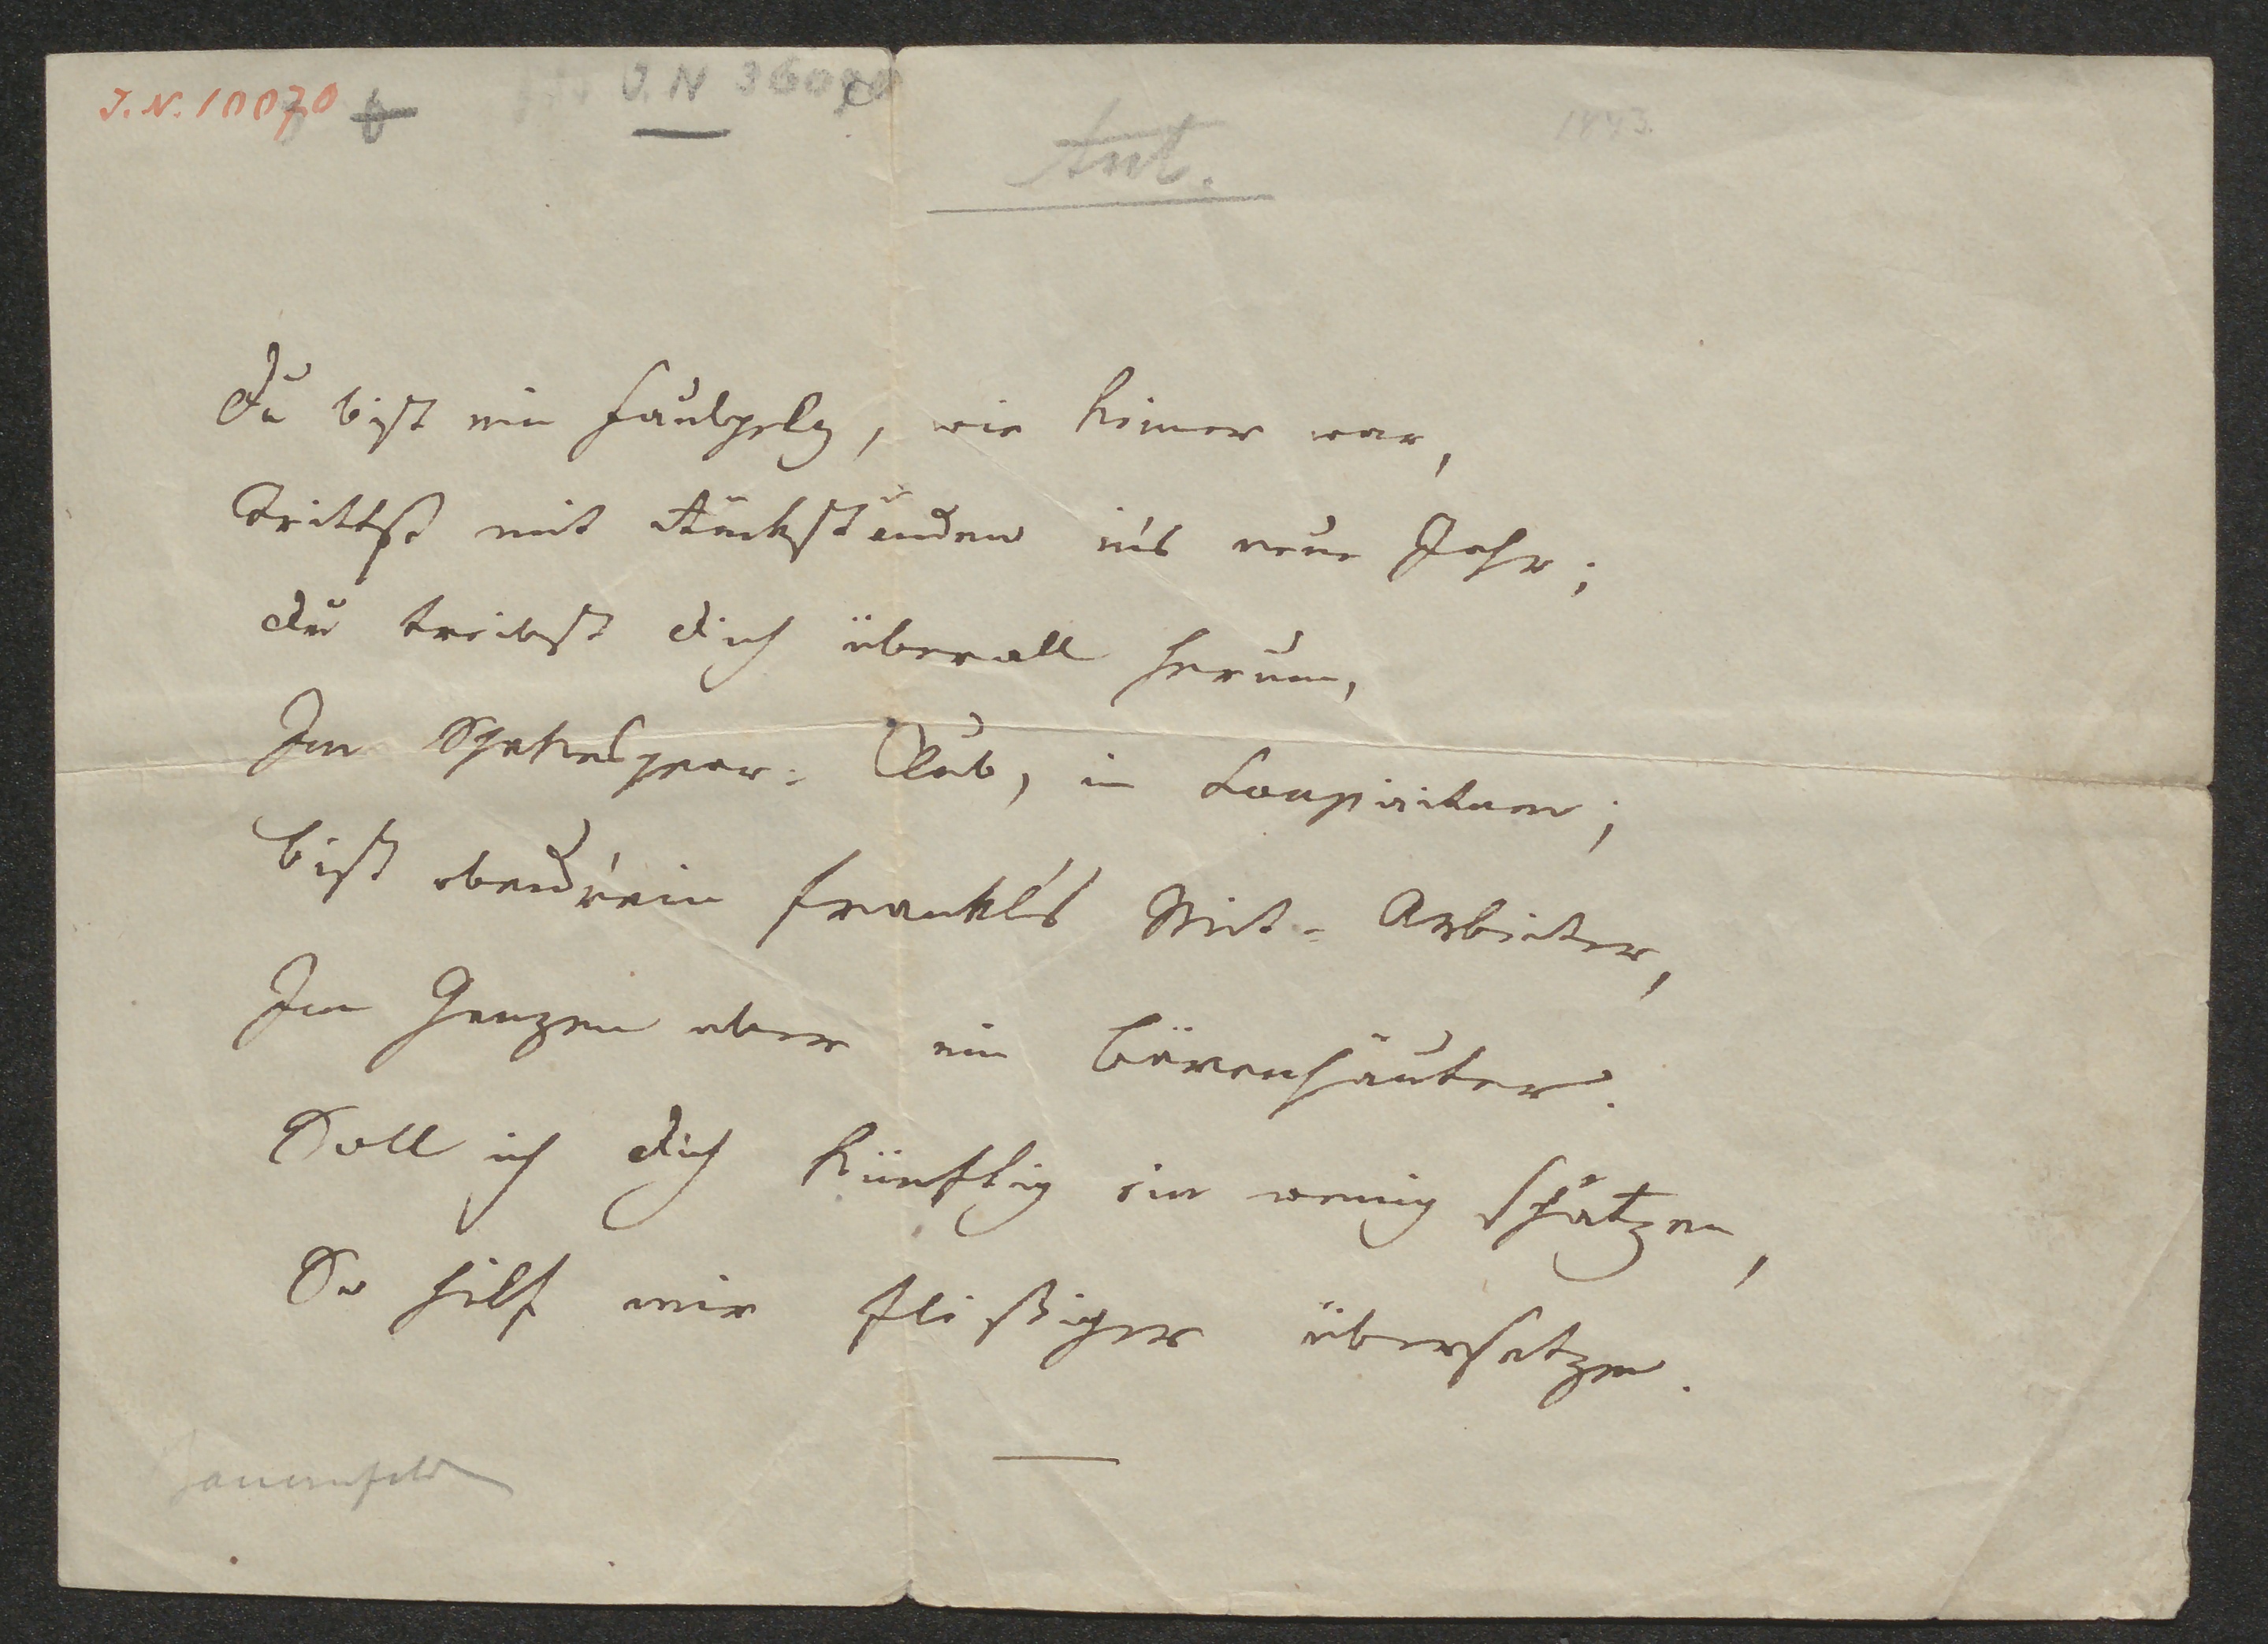 J. N. 10070
J. N 36070
Ant.
1843.
Du bist ein Faulpelz, wie keiner war,
Trittst mit Rückständen in's neue Jahr;
Du treibst dich überall herum,
Im Shakespear-Club, in Soupiritum;
Bist obendrein Frankl's Mit-Arbeiter,
Im Ganzen aber ein Bärenhäuter.
Soll ich dich künftig ein wenig schätzen,
So hilf mir fleißiger übersetzen.
Bauernfeld